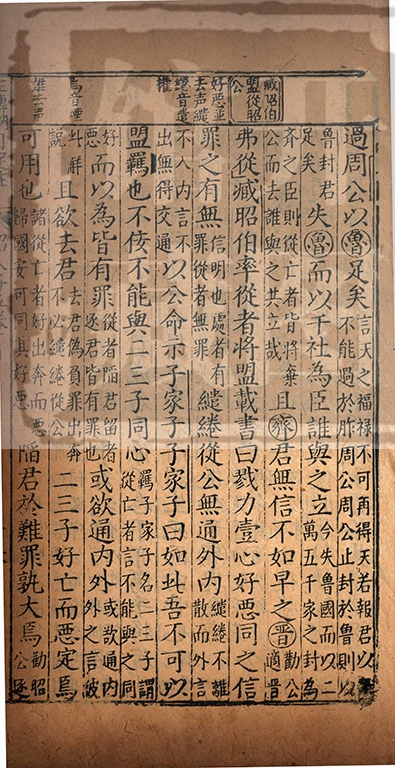 臧昭伯
盟從昭
公
好惡並
去声繾
綣音遣
權
焉音煙
難去声
過周公以魯足矣言天之福祿不可再得天若報君以不能過於胙周公周公止封於魯則以
魯封君足矣失魯而以千社為臣誰與之立今失魯國而以二萬五千家之封為
齊之臣則從亡者皆將棄公而去誰與之共立哉且齊君無信不如早之晉勸公適晉
弗從臧昭伯率從者將盟載書曰戮力壹心好惡同之信
罪之有無信明也處者有罪從者無罪繾綣從公無通外內繾綣不離散而外言
不入內言不出無得交通以公命示子家子子家子曰如此吾不可以
盟羈也不佞不能與二三子同心羈子家子名二三子謂從亡者言不能與之同
好惡而以為皆有罪從者陷君留者逐君皆有罪也或欲通內外或欲通內外之言彼
此解說且欲去君去君為負罪出奔不必繾綣從公二三子好亡而惡定焉
可用也諸從亡者好出奔而惡歸國安可同其好惡陷君於難罪孰大焉勸昭公逐